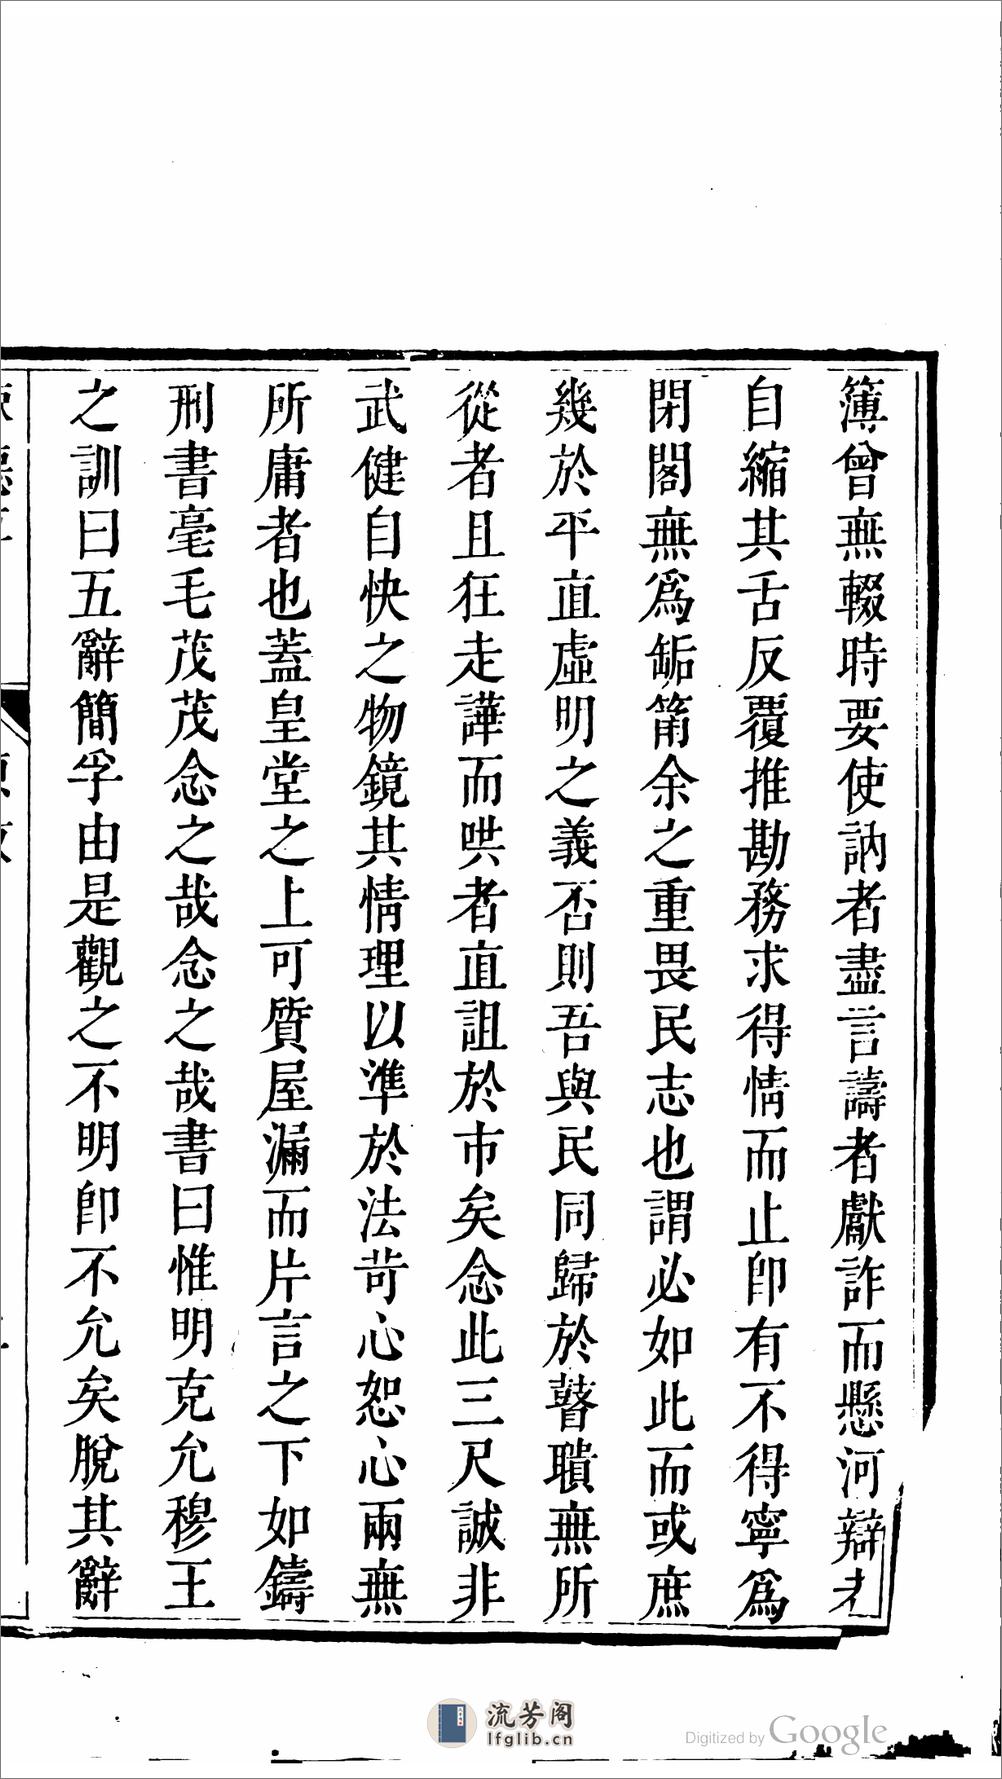 簿曾無輟時要使訥者盡言譸者獻詐而懸河辯者
自縮其舌反覆推勘務求得情而止卽有不得寧爲
閉閣無爲缿筩余之重畏民志也謂必如此而或庶
幾於平直虛明之義否則吾與民同歸於瞽聵無所
從者且狂走譁而哄者直詛於市矣念此三尺誠非
武健自快之物鏡其情理以準於法苛心恕心兩無
所庸者也蓋皇堂之上可質屋漏而片言之下如鑄
刑書毫毛茂茂念之哉念之哉書曰惟明克允穆王
之訓曰五辭簡孚由是觀之不明卽不允矣脫其辭
流芳阁
lfglib.cn
Digitized by Google